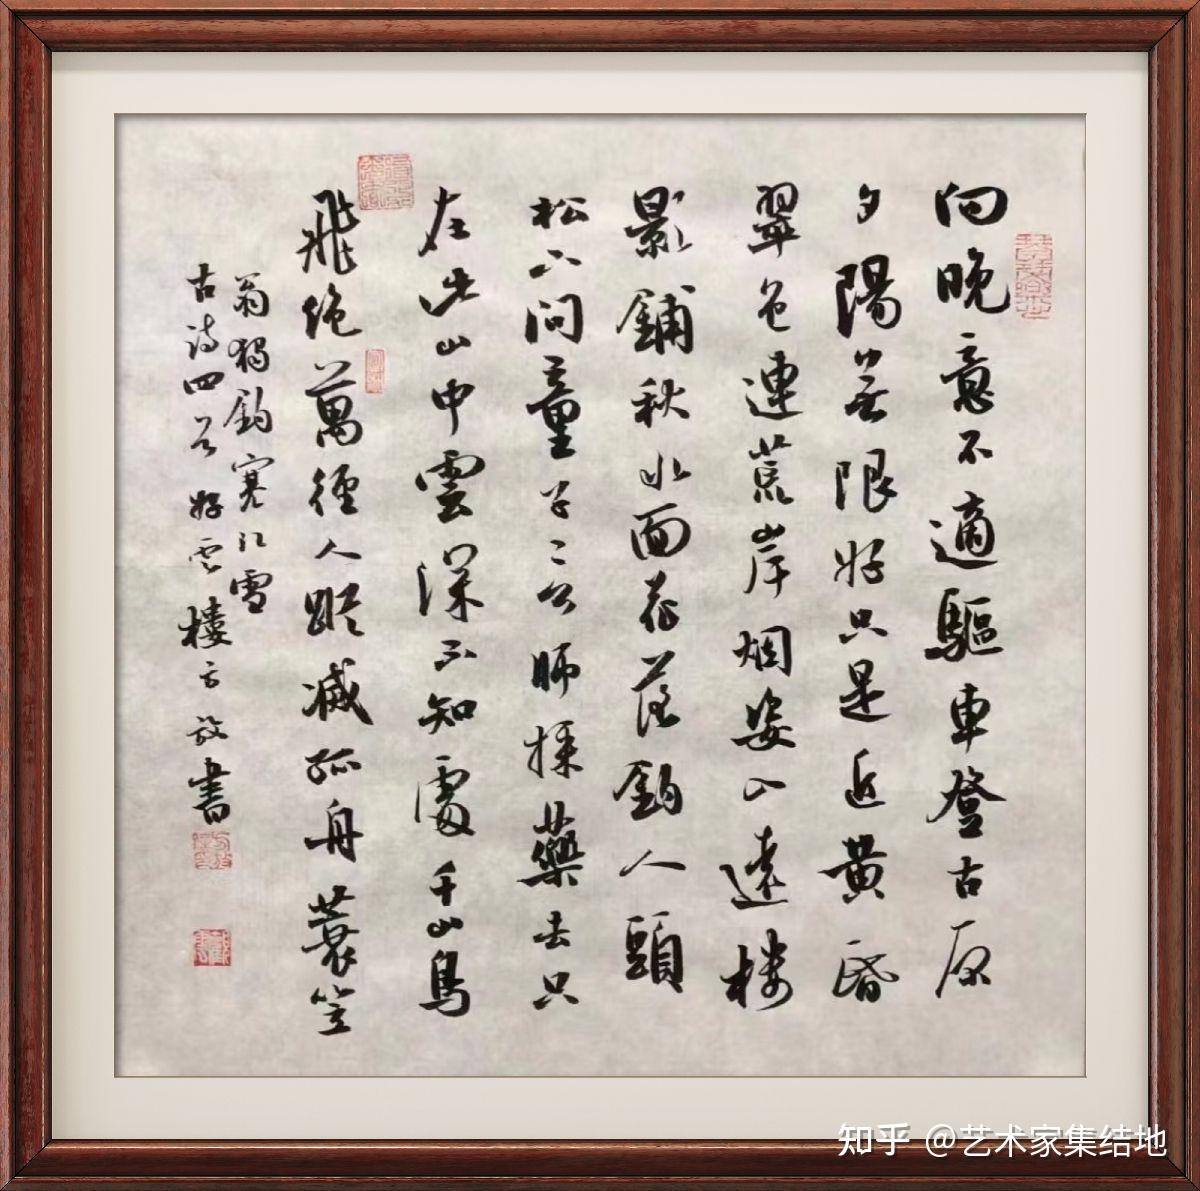 向晚意不適驅車登古原
夕陽無限好只是近黄昏
翠色連荒岸烟姿入遠楼
影鋪秋水面花落釣人頭
松下問童子言師採藥去只
在此山中雲深不知處千山鳥
飛絶萬徑人蹤滅孤舟蓑笠
翁獨釣寒江雪
古诗四首好云樓方放書
知乎 @艺术家集结地